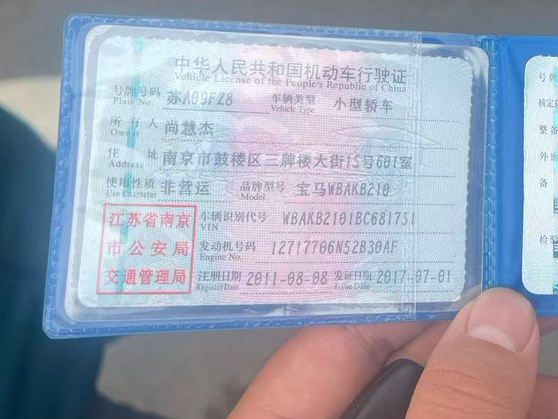 中华人民共和国机动车行驶证
Vehicle License of the People's Republic of China
号牌号码 苏A09FZ8 车辆类型 小型轿车
Plate No. Vehicle Type
所 有 人 尚慧杰
Owner
住 址 南京市鼓楼区三牌楼大街15号601室
Address
使用性质 非营运 品牌型号 宝马WBAKB210
Use Character Model
江苏省南京
市公安局
交通管理局
车辆识别代号 WBAKB2101BC681751
VIN
发动机号码 12717706N52B30AF
Engine No.
注册日期 2011-08-08 发证日期 2017-07-01
Register Date Issue Date
号牌
核定
整备
外廓
检验